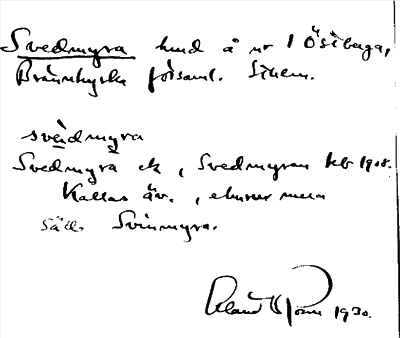 Svedmyra hmd å nr 1 Östberga,
Brännkyrka församl. Sthlm.
svèdmyra
Svedmyra ek, Svedmyran kb 1908.
Kallas äv. , ehuru mera
säll. Svinmyra.
1930.